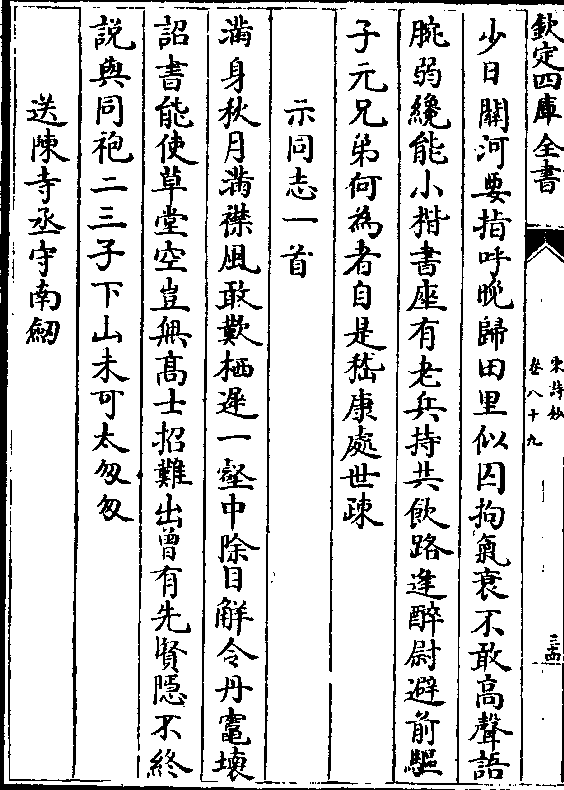 欽定四庫全書
宋詩鈔
卷八十九
三十四
少日關河要指呼晚歸田里似囚拘氣衰不敢高聲語
腕弱纔能小楷書座有老兵持共飲路逢醉尉避前驅
子元兄弟何為者自是嵇康處世疎
示同志一首
滿身秋月滿襟風敢歎栖遲一壑中除目解令丹竈壞
詔書能使草堂空豈無髙士招難出曾有先賢隠不終
説與同袍二三子下山未可太匆匆
送陳寺丞守南劒